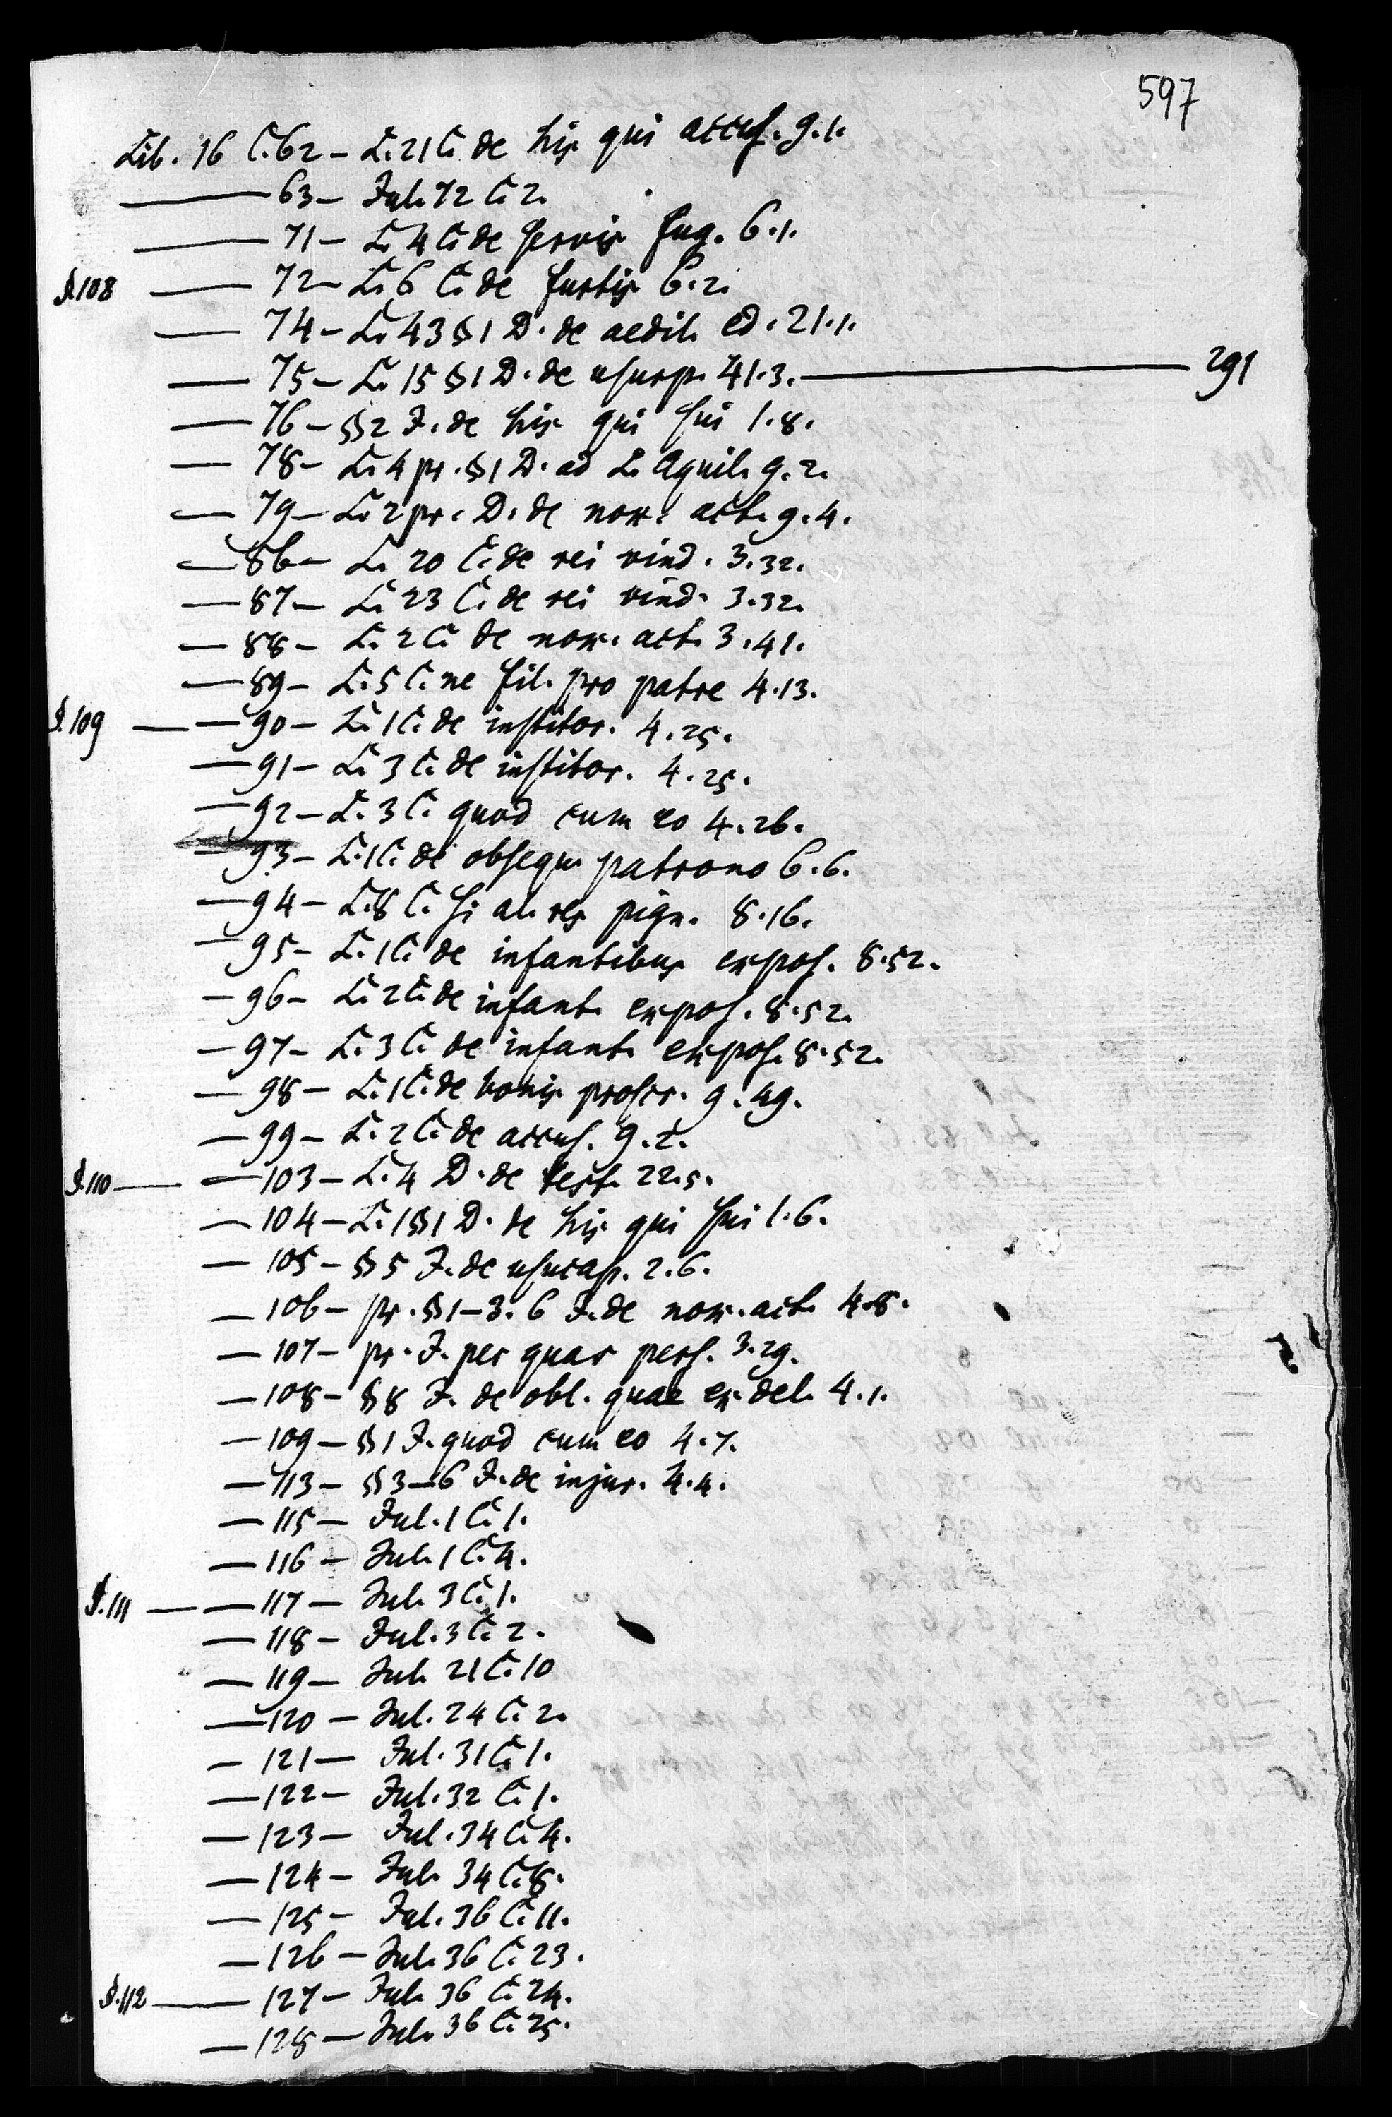 597
Lib. 16 C. 62 – L. 21 C. de his qui accus. 9.1.
— 63 – Jul. 72 C. 2.
— 71 – L. 4 C. de servis fug. 6.1.
§.108 — 72 – L. 6 C. de furtis 6.2.
— 74 – L. 43 § 1 D. de aedil. ed. 21.1.
— 75 – L. 15 § 1 D. de usurp. 41.3. — 291
— 76 – § 2 J. de his qui sui 1.8.
— 78 – L. 4 pr. § 1 D. ad L. Aquil. 9.2.
— 79 – L. 2 pr. D. de nox. act. 9.4.
— 86 – L. 20 C. de rei vind. 3.32.
— 87 – L. 23 C. de rei vind. 3.32.
— 88 – L. 2 C. de nox. act. 3.41.
— 89 – L. 5 C. ne fil. pro patre 4.13.
§.109 — 90 – L. 1 C. de institor. 4.25.
— 91 – L. 3 C. de institor. 4.25.
— 92 – L. 3 C. quod cum eo 4.26.
— 93 – L. 1 C. de obsequ. patrono 6.6.
— 94 – L. 8 C. si al. res pign. 8.16.
— 95 – L. 1 C. de infantibus expos. 8.52.
— 96 – L. 2 C. de infant. expos. 8.52.
— 97 – L. 3 C. de infant. expos. 8.52.
— 98 – L. 1 C. de bonis proscr. 9.49.
— 99 – L. 2 C. de accus. 9.2.
§.110 — 103 – L. 4 D. de test. 22.5.
— 104 – L. 1 § 1 D. de his qui sui 1.6.
— 105 – § 5 J. de usucap. 2.6.
— 106 – pr. § 1–3. 6 J. de nox. act. 4.8.
— 107 – pr. J. per quas pers. 3.29.
— 108 – § 8 J. de obl. quae ex del. 4.1.
— 109 – § 1 J. quod cum eo 4.7.
— 113 – § 3–6 J. de injur. 4.4.
— 115 – Jul. 1 C. 1.
— 116 – Jul. 1 C. 4.
§.111 — 117 – Jul. 3 C. 1.
— 118 – Jul. 3 C. 2.
— 119 – Jul. 21 C. 10
— 120 – Jul. 24 C. 2.
— 121 – Jul. 31 C. 1.
— 122 – Jul. 32 C. 1.
— 123 – Jul. 34 C. 4.
— 124 – Jul. 34 C. 8.
— 125 – Jul. 36 C. 11.
— 126 – Jul. 36 C. 23.
§.112 — 127 – Jul. 36 C. 24.
— 128 – Jul. 36 C. 25.